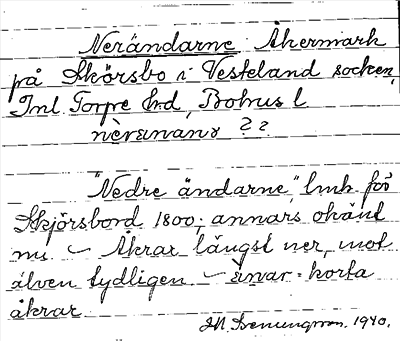 Nerändarne Åkermark
på Skårsbo i Vesteland socken,
Inl. Torpe hd, Bohus l
nèrana𝑛ɤ ? ?
"Nedre ändarne", lmh för
Skjörsbord 1800; annars okänt
nu. – Åkrar längst ner, mot
älven tydligen – änar = korta
åkrar
1940.